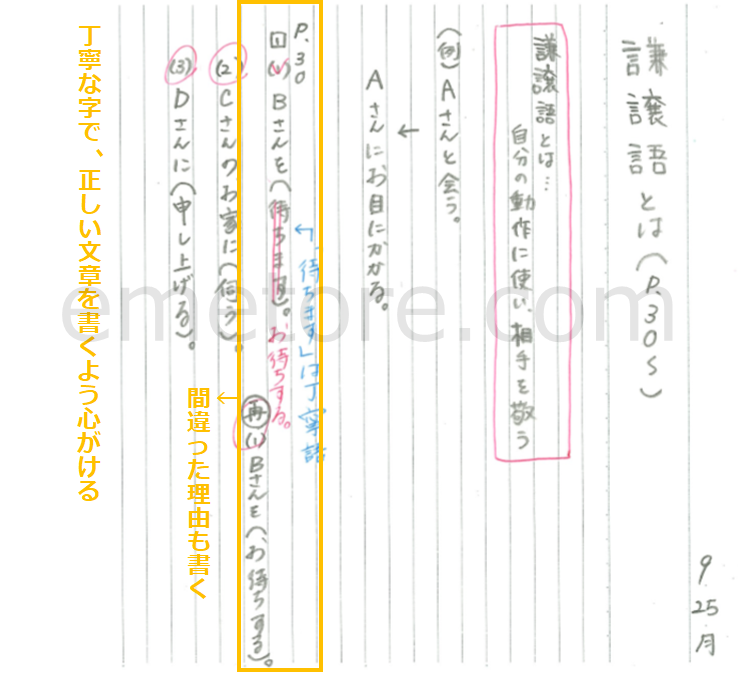 9
25
月
謙譲語とは（P.30〜）
謙譲語とは…
自分の動作に使い、相手を敬う
（例）Aさんと会う。
←
Aさんにお目にかかる。
P.30
1
(1) Bさんを（待ちます）。
お待ちする。
←「待ちます」は丁寧語
再 (1) Bさんを（お待ちする）。
(2) Cさんのお家に（伺う）。
(3) Dさんに（申し上げる）。
←
間違った理由も書く
丁寧な字で、正しい文章を書くよう心がける
emetore.com